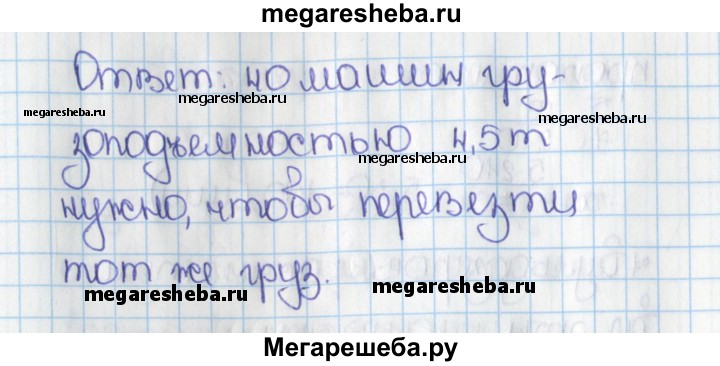 megaresheba.ru
Ответ: 40 машин гру-
megaresheba.ru
megaresheba.ru
зоподъемностью 4,5 т
megaresheba.ru
megaresheba.ru
нужно, чтобы перевезти
megaresheba.ru
тот же груз.
megaresheba.ru
megaresheba.ru
Мегарешеба.ру